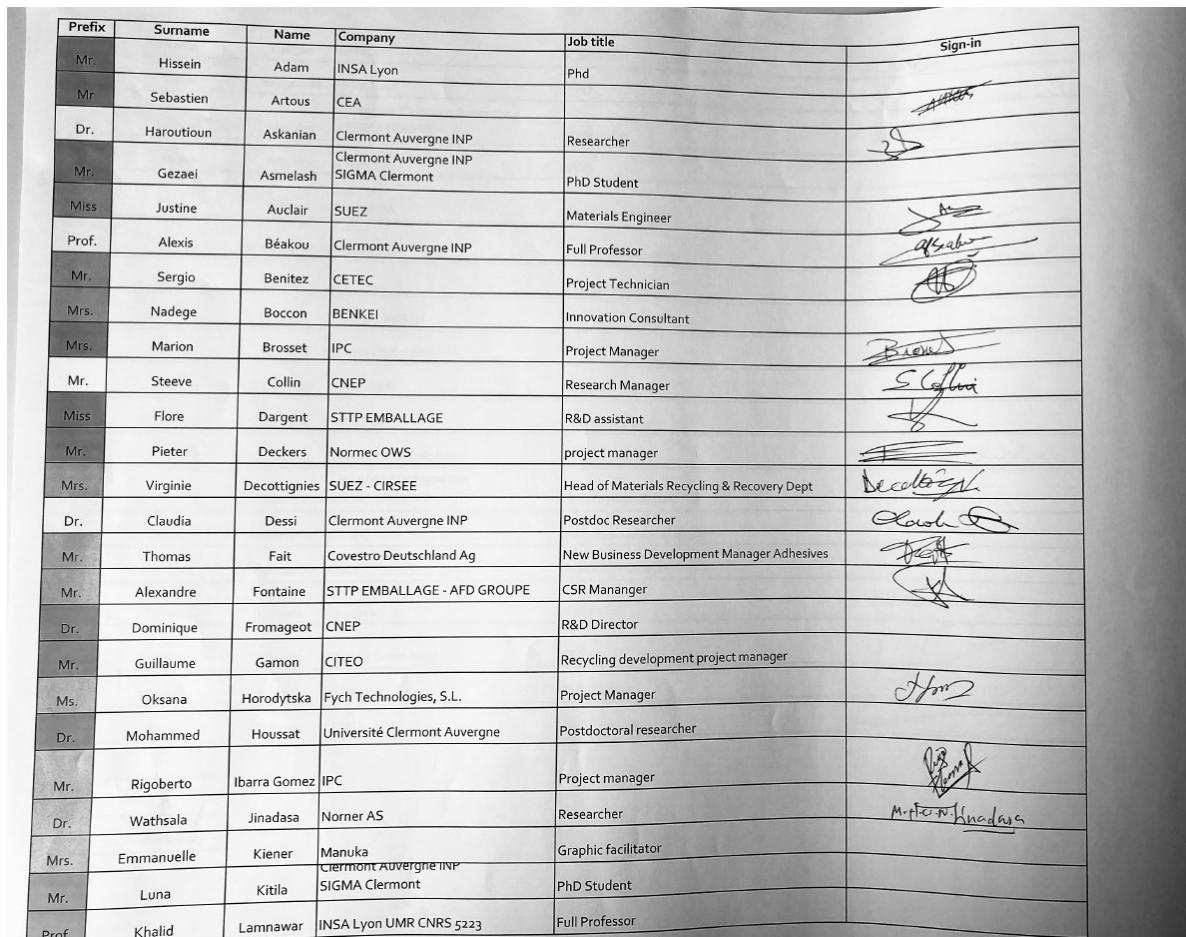 Prefix Surname Name Company Job title Sign-in
Mr. Hissein Adam INSA Lyon Phd
Mr Sebastien Artous CEA
Dr. Haroutioun Askanian Clermont Auvergne INP Researcher
Clermont Auvergne INP
Mr. Gezaei Asmelash SIGMA Clermont PhD Student
Miss Justine Auclair SUEZ Materials Engineer
Prof. Alexis Béakou Clermont Auvergne INP Full Professor
Mr. Sergio Benitez CETEC Project Technician
Mrs. Nadege Boccon BENKEI Innovation Consultant
Mrs. Marion Brosset IPC Project Manager
Mr. Steeve Collin CNEP Research Manager S Collin
Miss Flore Dargent STTP EMBALLAGE R&D assistant
Mr. Pieter Deckers Normec OWS project manager
Mrs. Virginie Decottignies SUEZ - CIRSEE Head of Materials Recycling & Recovery Dept
Dr. Claudia Dessi Clermont Auvergne INP Postdoc Researcher
Mr. Thomas Fait Covestro Deutschland Ag New Business Development Manager Adhesives
Mr. Alexandre Fontaine STTP EMBALLAGE - AFD GROUPE CSR Mananger
Dr. Dominique Fromageot CNEP R&D Director
Mr. Guillaume Gamon CITEO Recycling development project manager
Ms. Oksana Horodytska Fych Technologies, S.L. Project Manager
Dr. Mohammed Houssat Université Clermont Auvergne Postdoctoral researcher
Mr. Rigoberto Ibarra Gomez IPC Project manager
Dr. Wathsala Jinadasa Norner AS Researcher Jinadasa
Mrs. Emmanuelle Kiener Manuka Graphic facilitator
Clermont Auvergne INP
Mr. Luna Kitila SIGMA Clermont PhD Student
Prof. Khalid Lamnawar INSA Lyon UMR CNRS 5223 Full Professor